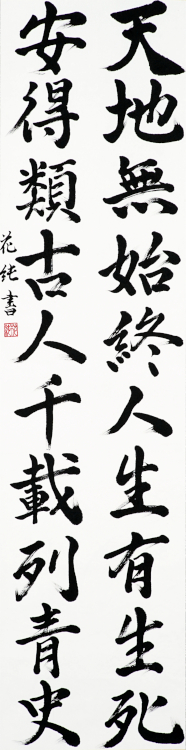 天地無始終人生有生死
安得類古人千載列青史
花純書